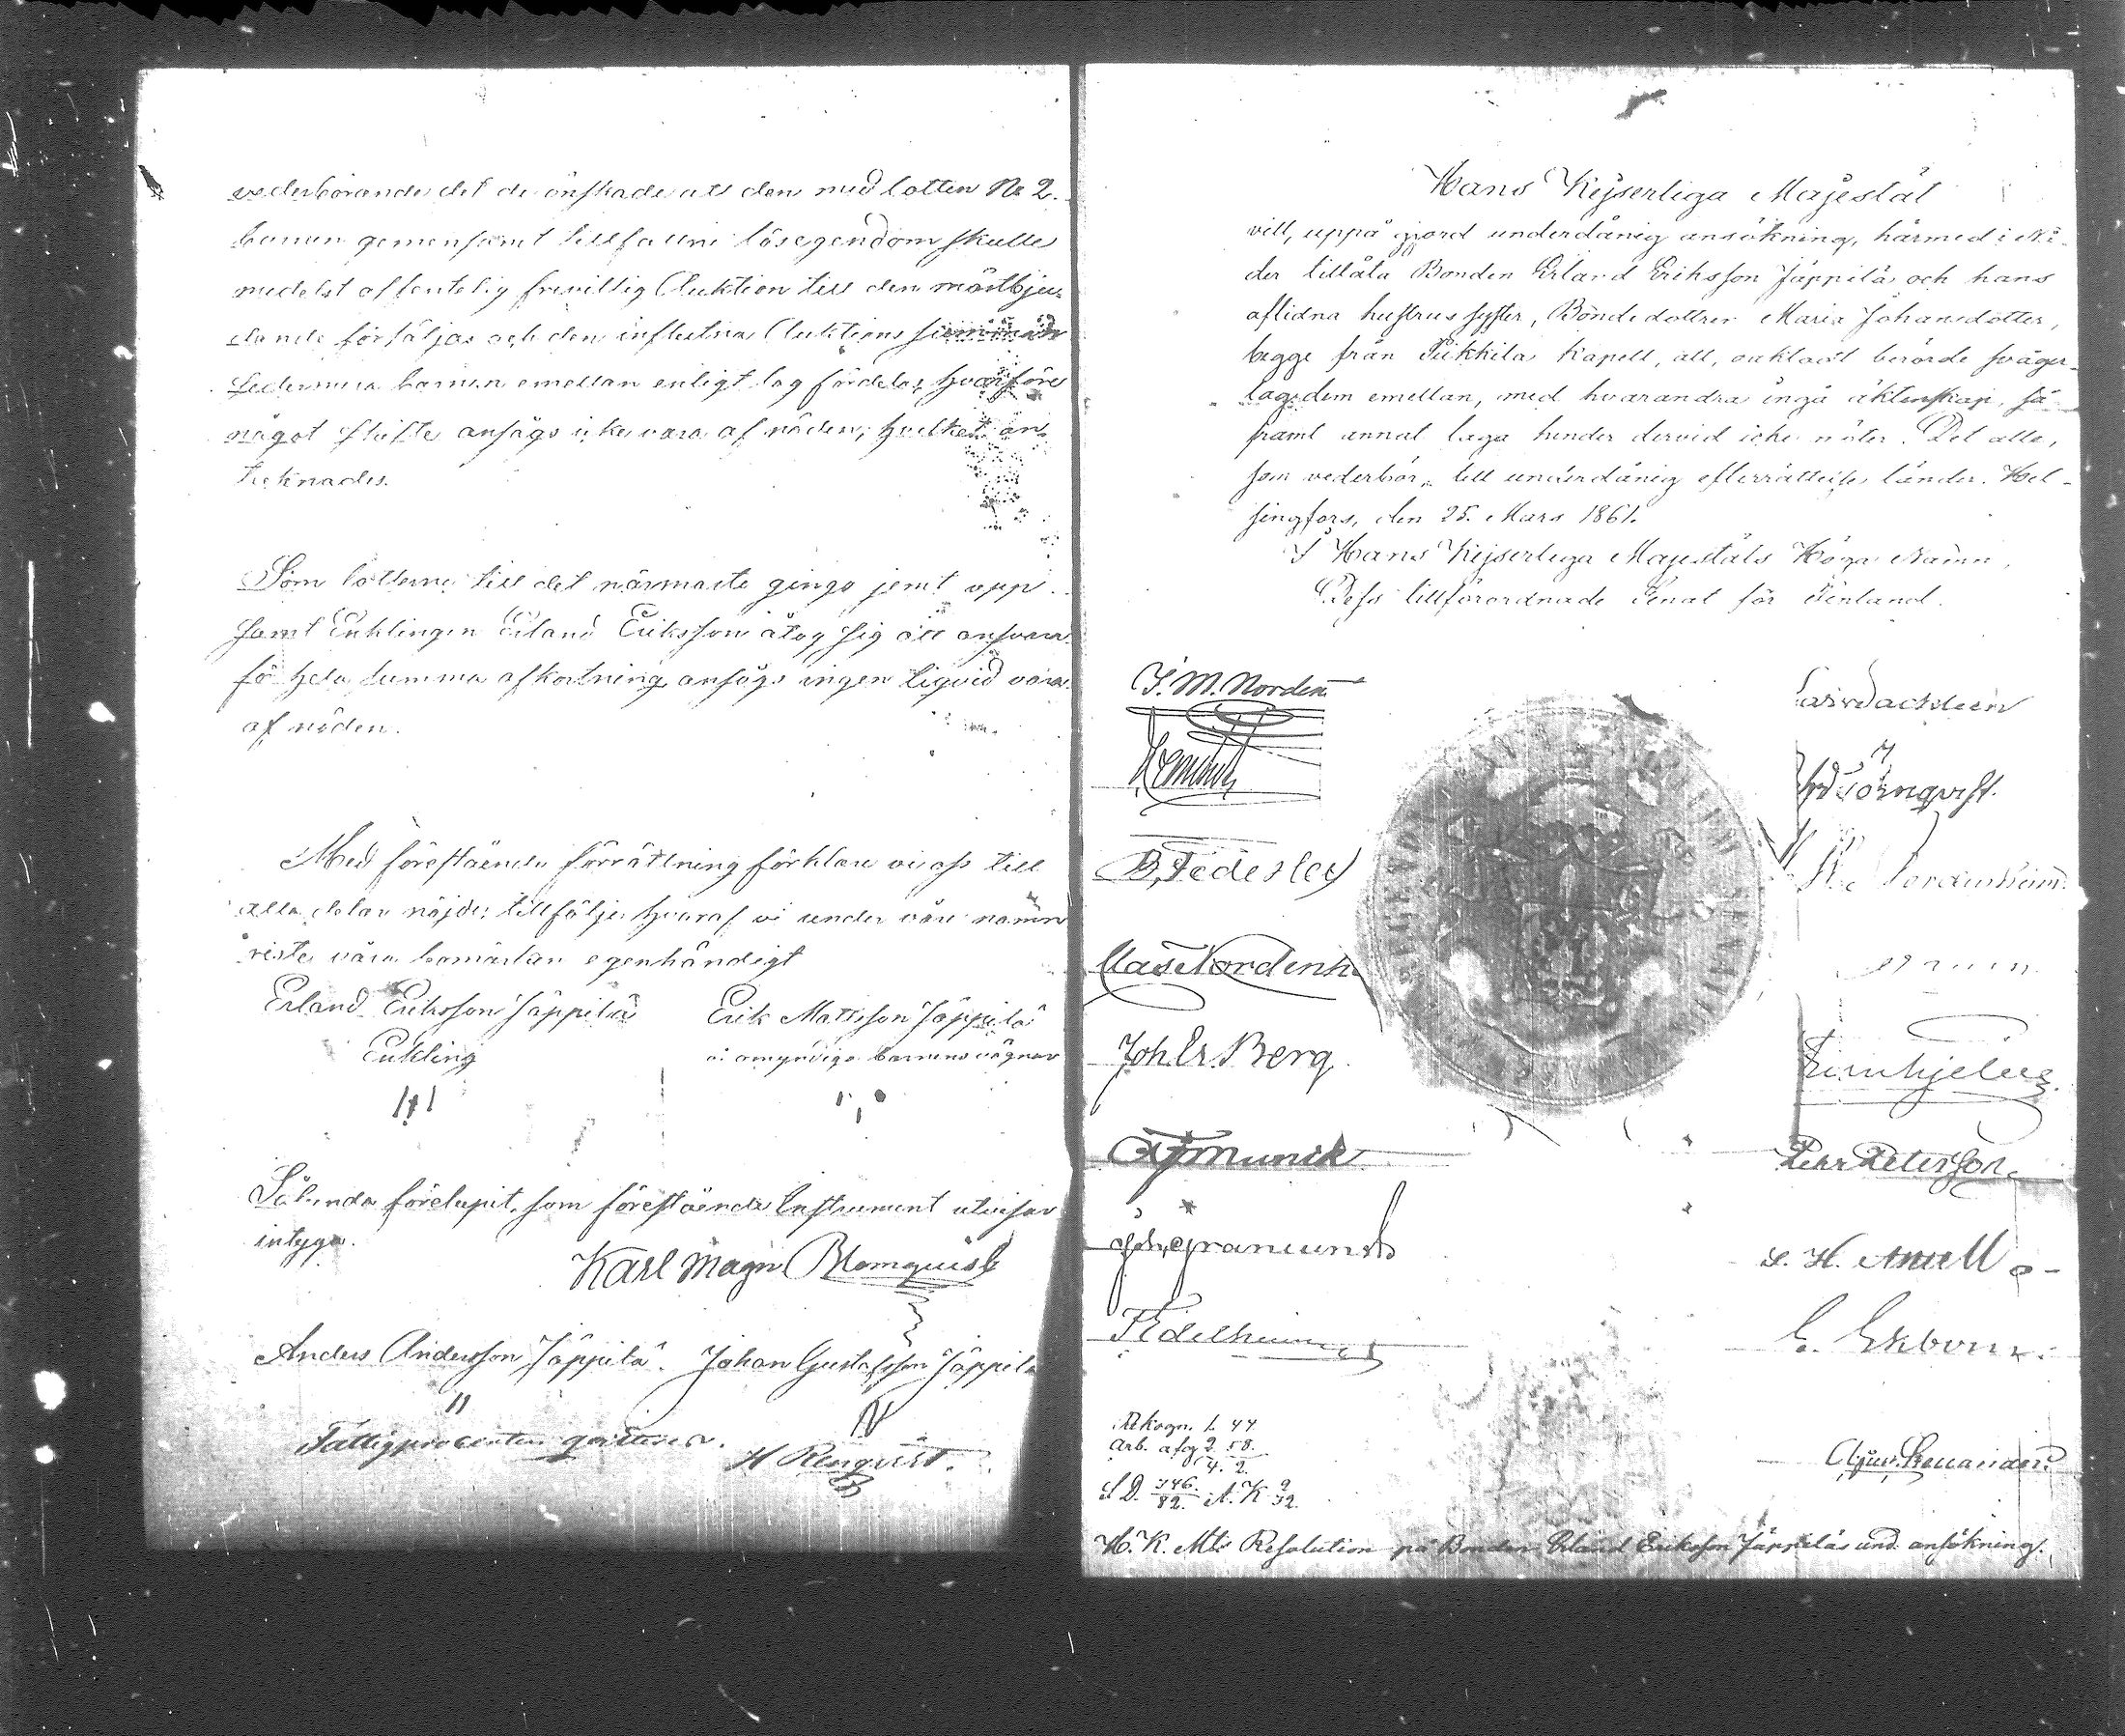 vederbörande det de önskade att den med lotten No 2.
barnen gemensamt tillfallne lösegendom skulle
medelst offentelig frivillig Auktion till den mästbju-
dande försäljas och den influtna Auktions summan
sedermera barnen emellan enligt lag fördelas, hvarföre
något skifte ansågs icke vara af nöden; hvilket an-
tecknades.
Som lotterne till det närmaste gingo jemt upp
samt Enklingen Erland Eriksson åtog sig att ansvara
för hela summa afkortning ansågs ingen liqvid vara
af nöden.
Med förestående förrättning förklare vi oss till
alla delar nöjde; tillfölje hvaraf vi under våre namn
riste våra bomärken egenhändigt
Erland Eriksson Jäppilä Erik Mattsson Jäppilä
Enkling omyndiga barnens vägnar
Sålunda förelupit, som förestående Instrument utvisar
intyga.
Karl Magn Blomquist
Anders Andersson Jäppilä. Johan Gustafsson Jäppilä
Fattigprocenten qvitteras.
H Renqvist.
Hans Kejserliga Majestät
vill, uppå gjord underdånig ansökning, härmed i Nå-
der tillåta Bonden Erland Eriksson Jäppilä och hans
aflidna hustrus syster, Bondedottren Maria Johansdotter,
begge från Kapell, att, oaktadt berörde svåger-
lag dem emellan, med hvarandra ingå äktenskap, så
framt annat laga hinder dervid icke möter. Det alle,
som vederbör, till underdånig efterrättelse länder. Hel-
singfors, den 25. Mars 1861.
I Hans Kejserliga Majestäts Höga Namn,
Dess tillförordnade Senat för Finland.
J. M. Nordenst
Törnqvist.
B, Federley
Joh. Er. Berg
Munck
Pehr Peterson
Joh. Granlund
S. H. Antell
F Edelheim
E. Ekbom
Rekogn. 1. 44
Arb. afg 2. 58.
4. 2.
S D. 346./82. A. K 9/32.
H. K. Mts Resolution på Bonden Erland Eriksson Jäppiläs und. ansökning.